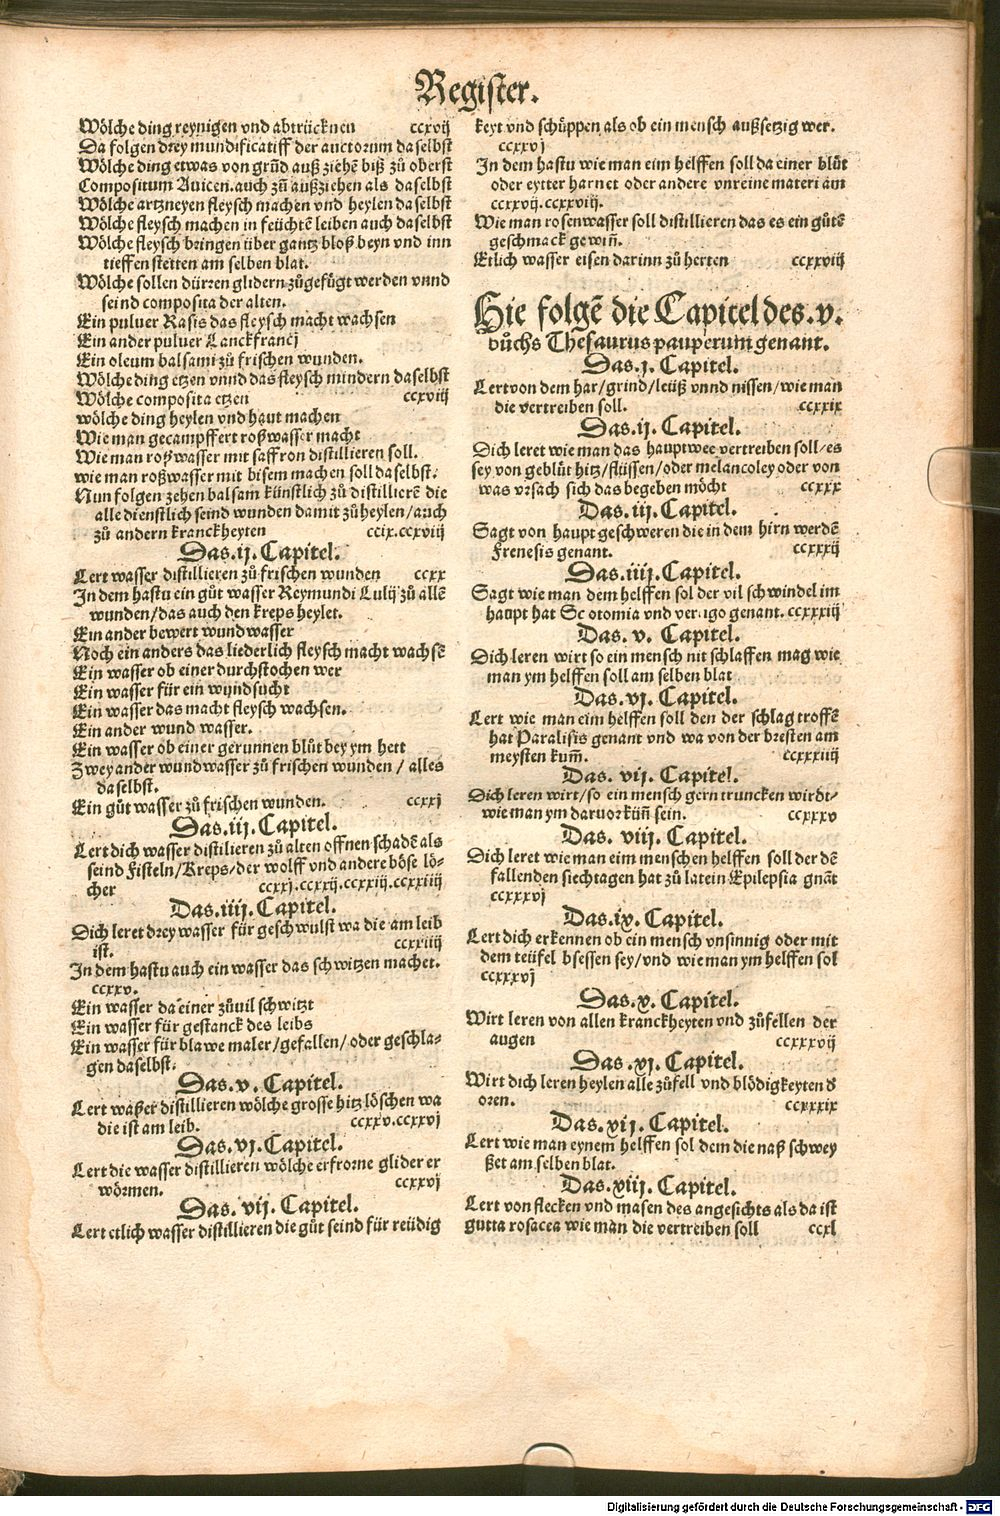 Register.
Wölche ding reynigen vnd abtrücknen ccxvij
Da folgen drey mundificatiff der auctorum daselbst
Wölche ding etwas von grūd auß ziehē biß zů oberst
Compositum Auicen.auch zů außziehen als daselbst
Wölche artzneyen fleysch machen vnd heylen daselbst
Wölche fleysch machen in feüchtē leiben auch daselbst
Wölche fleysch bringen über gantz bloß beyn vnd inn
tieffen stetten am selben blat.
Wölche sollen dürren glidern zůgefügt werden vnnd
seind composita der alten.
Ein puluer Rasis das fleysch macht wachsen
Ein ander puluer Lanckfrancij
Ein oleum balsami zů frischen wunden.
Wölche ding etzen vnnd das fleysch mindern daselbst
Wölche composita etzen ccxviij
wölche ding heylen vnd haut machen
Wie man gecampffert roßwasser macht
Wie man roßwasser mit saffron distillieren soll.
wie man roßwasser mit bisem machen soll daselbst.
Nun folgen zehen balsam künstlich zů distillierē die
alle dienstlich seind wunden damit zů heylen/auch
zů andern kranckheyten ccix.ccxviij
Das.ij.Capitel.
Lert wasser distillieren zů frischen wunden ccxx
In dem hastu ein gůt wasser Reymundi Lulij zů allē
wunden/das auch den kreps heylet.
Ein ander bewert wundwasser
Noch ein anders das liederlich fleysch macht wachsē
Ein wasser ob einer durchstochen wer
Ein wasser für ein wyndsucht
Ein wasser das macht fleysch wachsen.
Ein ander wund wasser.
Ein wasser ob einer gerunnen blůt bey ym hett
Zwey ander wundwasser zů frischen wunden / alles
daselbst.
Ein gůt wasser zů frischen wunden. ccxxj
Das.iij.Capitel.
Lert dich wasser distilieren zů alten offnen schadē als
seind Fisteln/Kreps/der wolff vnd andere böse lö-
cher ccxxj.ccxxij.ccxxiij.ccxxiiij
Das.iiij.Capitel.
Dich leret drey wasser für geschwulst wa die am leib
ist. ccxxiiij
In dem hastu auch ein wasser das schwitzen machet.
ccxxv.
Ein wasser da einer zůuil schwitzt
Ein wasser für gestanck des leibs
Ein wasser für blawe maler/gefallen/oder geschla-
gen daselbst.
Das.v.Capitel.
Lert waßer distillieren wölche grosse hitz löschen wa
die ist am leib. ccxxv.ccxxvj
Das.vj.Capitel.
Lert die wasser distillieren wölche erfrorne glider er
wörmen. ccxxvj
Das. vij. Capitel.
Lert etlich wasser distillieren die gůt seind für reüdig
keyt vnd schüppen als ob ein mensch außsetzig wer.
ccxxvj
In dem hastu wie man eim helffen soll da einer blůt
oder eytter harnet oder andere vnreine materi am
ccxxvij.ccxxviij.
Wie man rosenwasser soll distillieren das es ein gůtē
geschmack gewiñ.
Etlich wasser eisen darinn zů herten ccxxviij
Hie folgē die Capitel des.v.
bůchs Thesaurus pauperum genant.
Das.j.Capitel.
Lert von dem har/grind/leüß vnnd nissen/wie man
die vertreiben soll. ccxxix
Das.ij.Capitel.
Dich leret wie man das hauptwee vertreiben soll/es
sey von geblüt hitz/flüssen/oder melancoley oder von
was vrsach sich das begeben möcht ccxxx
Das.iij.Capitel.
Sagt von haupt geschweren die in dem hirn werdē
Frenesis genant. ccxxxij
Das.iiij.Capitel.
Sagt wie man dem helffen sol der vil schwindel im
haupt hat Scotomia vnd vertigo genant. ccxxxiij
Das. v. Capitel.
Dich leren wirt so ein mensch nit schlaffen mag wie
man ym helffen soll am selben blat
Das.vj.Capitel.
Lert wie man eim helffen soll den der schlag troffē
hat Paralisis genant vnd wa von der bresten am
meysten kum̃. ccxxxiiij
Das. vij. Capitel.
Dich leren wirt/so ein mensch gern truncken wirdt/
wie man ym daruor küñ sein. ccxxxv
Das. viij. Capitel.
Dich leret wie man eim menschen helffen soll der dē
fallenden siechtagen hat zů latein Epilepsia gnāt
ccxxxvj
Das.ix.Capitel.
Lert dich erkennen ob ein mensch vnsinnig oder mit
dem teüfel bsessen sey/vnd wie man ym helffen sol
ccxxxvj
Das.x.Capitel.
Wirt leren von allen kranckheyten vnd zůfellen der
augen ccxxxvij
Das.xj.Capitel.
Wirt dich leren heylen alle zůfell vnd blödigkeyten d
oren. ccxxxix
Das.xij.Capitel.
Lert wie man eynem helffen sol dem die naß schwey
ßet am selben blat.
Das.xiij.Capitel.
Lert von flecken vnd masen des angesichts als da ist
gutta rosacea wie man die vertreiben soll ccxl
Digitalisierung gefördert durch die Deutsche Forschungsgemeinschaft - DFG